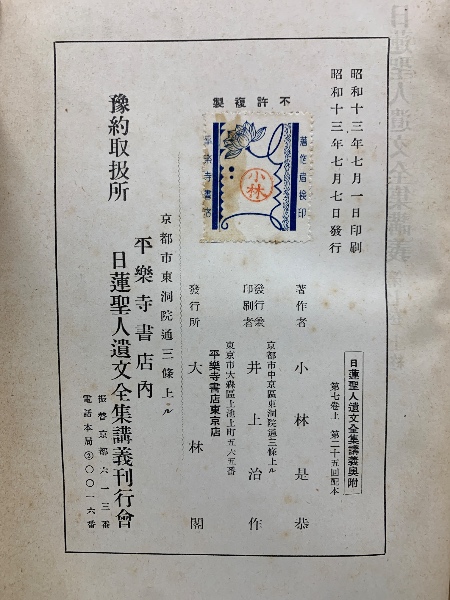 昭和十三年七月一日印刷
昭和十三年七月七日發行
不許複製
著作者檢印
小林
平樂寺書店
日蓮聖人遺文全集講義奧附
第七卷上　第二十五回配本
著作者　小林是恭
京都市中京區東洞院通三條上ル
發行兼印刷者　井上治作
東京市大森區上池上町五六五番
平樂寺書店東京店
發行所　大林閣
京都市東洞院通三條上ル
平樂寺書店內
豫約取扱所　日蓮聖人遺文全集講義刊行會
振替京都六一三番
電話本局③〇〇一六番